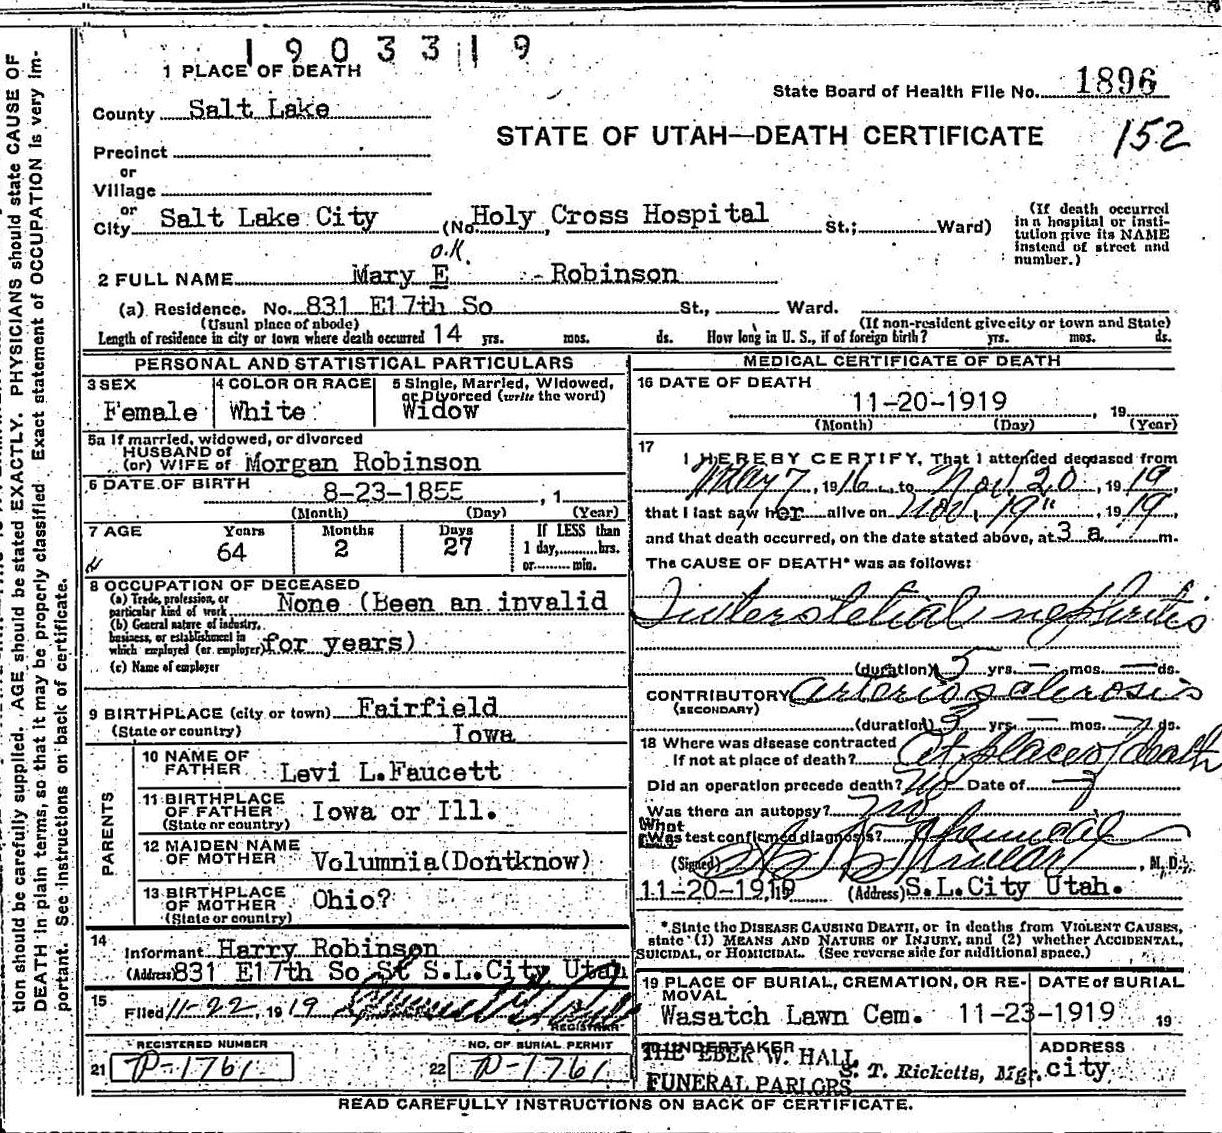 1903319
1 PLACE OF DEATH
State Board of Health File No. 1896
County Salt Lake
STATE OF UTAH—DEATH CERTIFICATE
152
Precinct
or
Village
or
City Salt Lake City (No. Holy Cross Hospital St.; Ward)
(If death occurred in a hospital or insti-
tution give its NAME
instead of street and
number.)
O.K.
2 FULL NAME Mary E Robinson
(a) Residence. No. 831 E17th So St., Ward.
(Usual place of abode) (If non-resident give city or town and State)
Length of residence in city or town where death occurred 14 yrs. mos. ds. How long in U. S., if of foreign birth? yrs. mos. ds.
PERSONAL AND STATISTICAL PARTICULARS
3 SEX
Female
4 COLOR OR RACE
White
5 Single, Married, Widowed,
or Divorced (write the word)
Widow
5a If married, widowed, or divorced
HUSBAND of
(or) WIFE of Morgan Robinson
6 DATE OF BIRTH
8-23-1855, 1
(Month) (Day) (Year)
7 AGE Years Months Days If LESS than
64 2 27 1 day, hrs.
or min.
8 OCCUPATION OF DECEASED
(a) Trade, profession, or
particular kind of work None (Been an invalid
(b) General nature of industry,
business, or establishment in
which employed (or employer) for years)
(c) Name of employer
9 BIRTHPLACE (city or town) Fairfield
(State or country) Iowa
PARENTS
10 NAME OF
FATHER Levi L.Faucett
11 BIRTHPLACE
OF FATHER Iowa or Ill.
(State or country)
12 MAIDEN NAME
OF MOTHER Volumnia(Dontknow)
13 BIRTHPLACE
OF MOTHER Ohio?
(State or country)
14
Informant Harry Robinson
(Address) 831 E17th So St S.L.City Utah
15
Filed 11-22, 1919
REGISTRAR
REGISTERED NUMBER
21 P-1761
NO. OF BURIAL PERMIT
22 P-1761
MEDICAL CERTIFICATE OF DEATH
16 DATE OF DEATH
11-20-1919, 19
(Month) (Day) (Year)
17
I HEREBY CERTIFY, That I attended deceased from
May 7, 1916, to Nov. 20, 1919,
that I last saw her alive on Nov. 19", 1919,
and that death occurred, on the date stated above, at 3 a m.
The CAUSE OF DEATH* was as follows:
Interstetial nephritis
(duration) 5 yrs. — mos. — ds.
CONTRIBUTORY Arterio sclerosis
(SECONDARY)
(duration) 5 yrs. — mos. ds.
18 Where was disease contracted
If not at place of death? At place of death
Did an operation precede death? No Date of
Was there an autopsy? No
What
Was test confirmed diagnosis? Chemical
(Signed) , M. D.
11-20-1919, 19 (Address) S.L.City Utah.
*State the DISEASE CAUSING DEATH, or in deaths from VIOLENT CAUSES,
state (1) MEANS AND NATURE OF INJURY, and (2) whether ACCIDENTAL,
SUICIDAL, or HOMICIDAL. (See reverse side for additional space.)
19 PLACE OF BURIAL, CREMATION, OR RE-
MOVAL
DATE of BURIAL
Wasatch Lawn Cem. 11-23-1919 19
20 UNDERTAKER
THE EBER W. HALL
FUNERAL PARLORS
S. T. Ricketts, Mgr.
ADDRESS
city
READ CAREFULLY INSTRUCTIONS ON BACK OF CERTIFICATE.
tion should be carefully supplied. AGE should be stated EXACTLY. PHYSICIANS should state CAUSE OF
DEATH in plain terms, so that it may be properly classified. Exact statement of OCCUPATION is very im-
portant. See instructions on back of certificate.